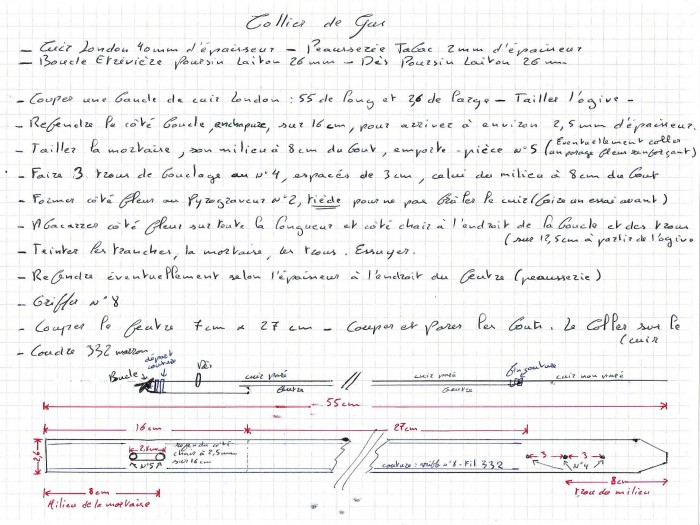 Collier de Gus
- Cuir London 40mm d'épaisseur - Peausserie Tabac 2mm d'épaisseur
- Boucle Etrivière Poursin Laiton 26mm - Dés Poursin Laiton 26 mm
- Couper une bande de cuir London : 55 de long et 2,6 de large - Tailler l'ogive -
- Refendre le côté boucle, enchapure, sur 16 cm, pour arriver à environ 2,5 mm d'épaisseur.
- Tailler la mortaise, son milieu à 8cm du bout, emporte-pièce n°5 (Eventuellement coller
un parage fleur renforçant)
- Faire 3 trous de bouclage au n°4, espacés de 3cm, celui du milieu à 8cm du bout
- côté fleur au Pyrograveur n°2, tiède pour ne pas brûler le cuir (faire un essai avant)
- Abacarrer côté fleur sur toute la longueur et côté chair à l'endroit de la boucle et des trous
(sur 12,5cm à partir de l'ogive
- Teinter les tranches, la mortaise, les trous. Essuyer.
- Refendre éventuellement selon l'épaisseur à l'endroit du feutre (peausserie)
- Griffer n°8
- Couper le feutre 7cm x 27 cm - Couper et Parer les bouts. Le coller sur le
(cuir
- Coudre 332 marron
départ
couture
Dés
Boucle
cuir paré
feutre
cuir paré
feutre
fin couture
cuir non paré
55cm
16 cm
27 cm
2,6
2,5cm
N°5
refendu côté
chair à 2,5mm
sur 16cm
couture : griffe n°8 - Fil 332
3
3
N°4
8cm
Milieu de la mortaise
8cm
trou du milieu